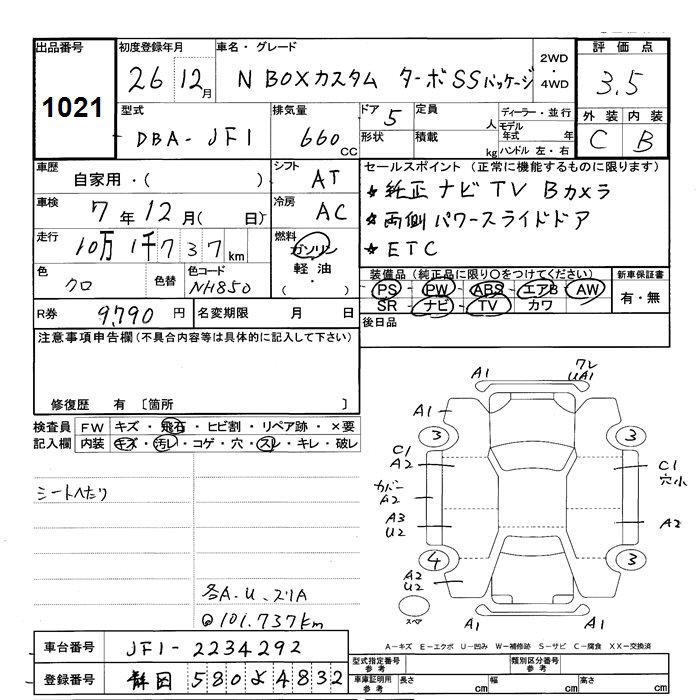 出品番号 初度登録年月 車名・グレード 評価点
1021 26 12月 N BOXカスタム ターボSSパッケージ 2WD・4WD 3.5
型式 排気量 ドア 定員 ディーラー・並行 外装 内装
DBA-JF1 660cc 5 人 モデル年式 年 C B
形状 積載 kg ハンドル 左・右
車歴 シフト セールスポイント (正常に機能するものに限ります)
自家用・( ) AT ★純正ナビTV Bカメラ
車検 7年12月( 日) 冷房 AC ★両側パワースライドドア
走行 10万1千737km 燃料 ガソリン・軽油・( ) ★ETC
色 クロ 色替 色コード NH850
装備品 (純正品に限り○をつけてください) 新車保証書
PS・PW・ABS・エアB・AW 有・無
SR・ナビ・TV・カワ
R券 9,790円 名変期限 月 日 後日品
注意事項申告欄(不具合内容等は具体的に記入して下さい)
修復歴 有 〔箇所 〕
検査員 FW キズ・飛石・ヒビ割・リペア跡・×要
記入欄 内装 キズ・汚レ・コゲ・穴・スレ・キレ・破レ
シートヘたり
各A.U.スリA
@101.737km
A1 ワレ UA1
A1
3 3
C1 A2 C1 穴小
カバー A2
A3 U2 A2
4 3
A2 U2
スペア A1 A1
A-キズ E-エクボ U-凹み W-補修跡 S-サビ C-腐食 XX-交換済
車台番号 JF1-2234292
型式指定番号 参考 類別区分番号 参考
登録番号 静岡 580 よ 4832
車庫証明用 参考 長さ cm 幅 cm 高さ cm